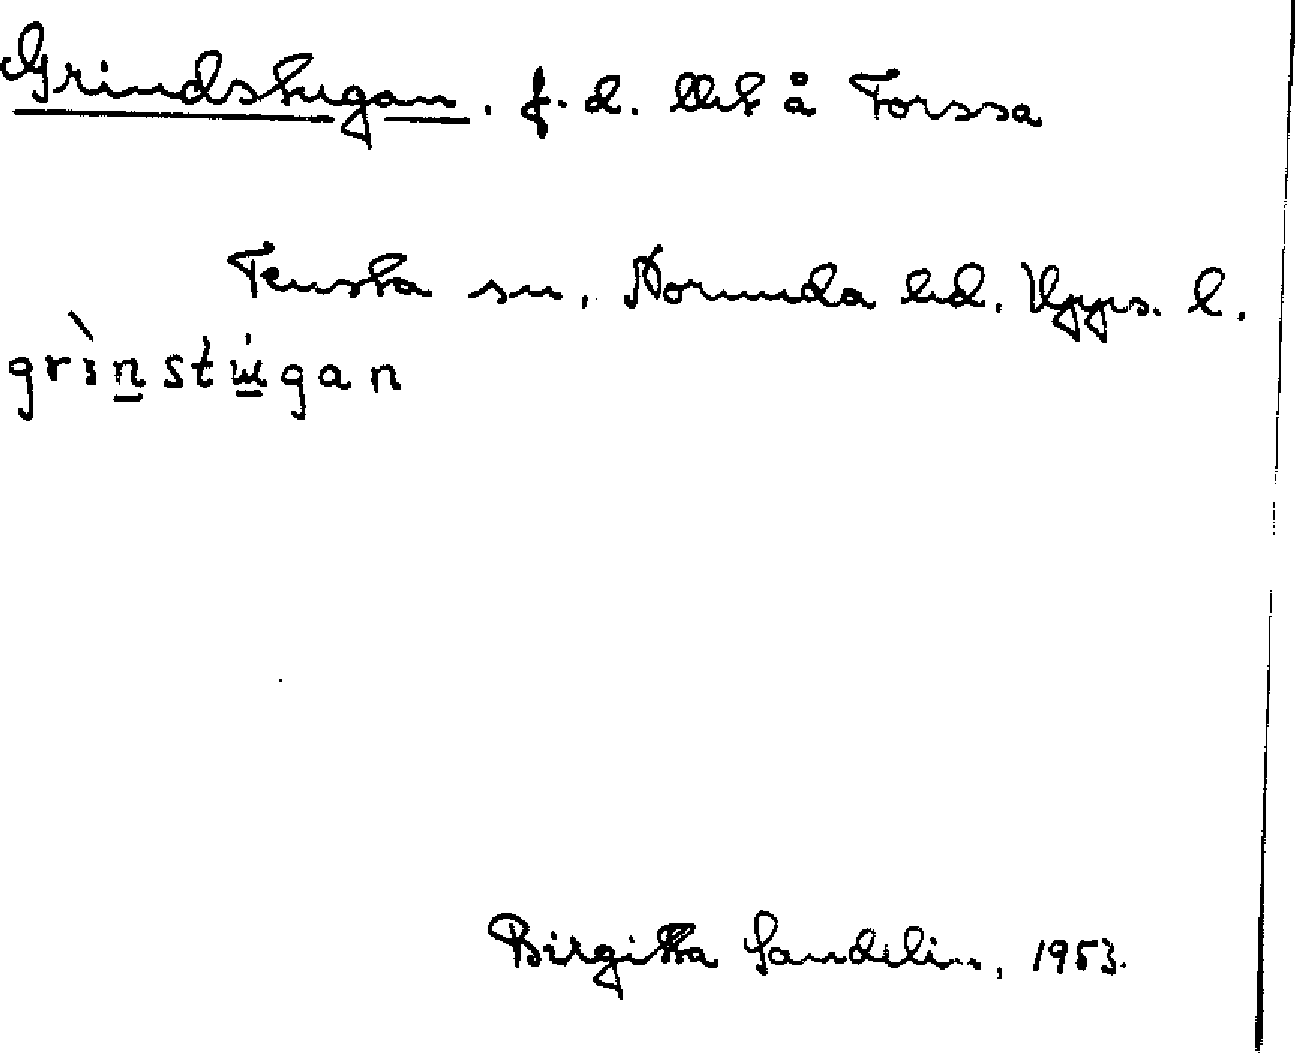 Grindstugan. f.d. lht å Forssa
Tensta sn. Norunda hd. Upps. l.
grìnstu̇gan
Birgitta Sandelin, 1953.